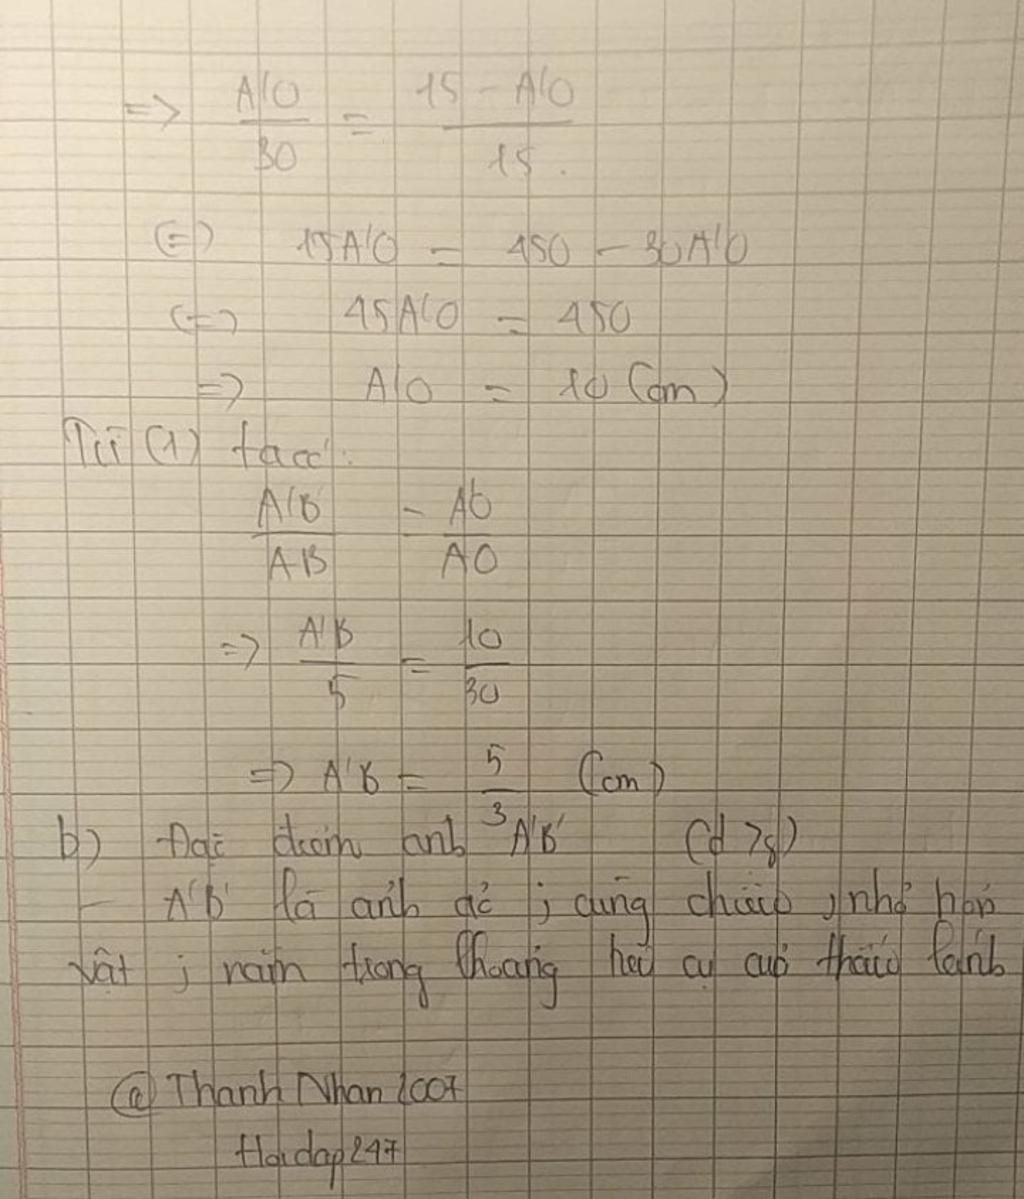 => A'O/30 = 15 - A'O/15.
<=> 15A'O = 450 - 30A'O
<=> 45A'O = 450
=> A'O = 10 (cm)
Từ (1) ta có:
A'B'/AB = A'O/AO
=> A'B'/5 = 10/30
=> A'B' = 5/3 (cm)
b) Đặc điểm ảnh A'B' (d > f)
- A'B' là ảnh ảo ; cùng chiều ; nhỏ hơn
vật ; nằm trong khoảng tiêu cự của thấu kính
@ Thanh Nhan 2007
Hoidap247